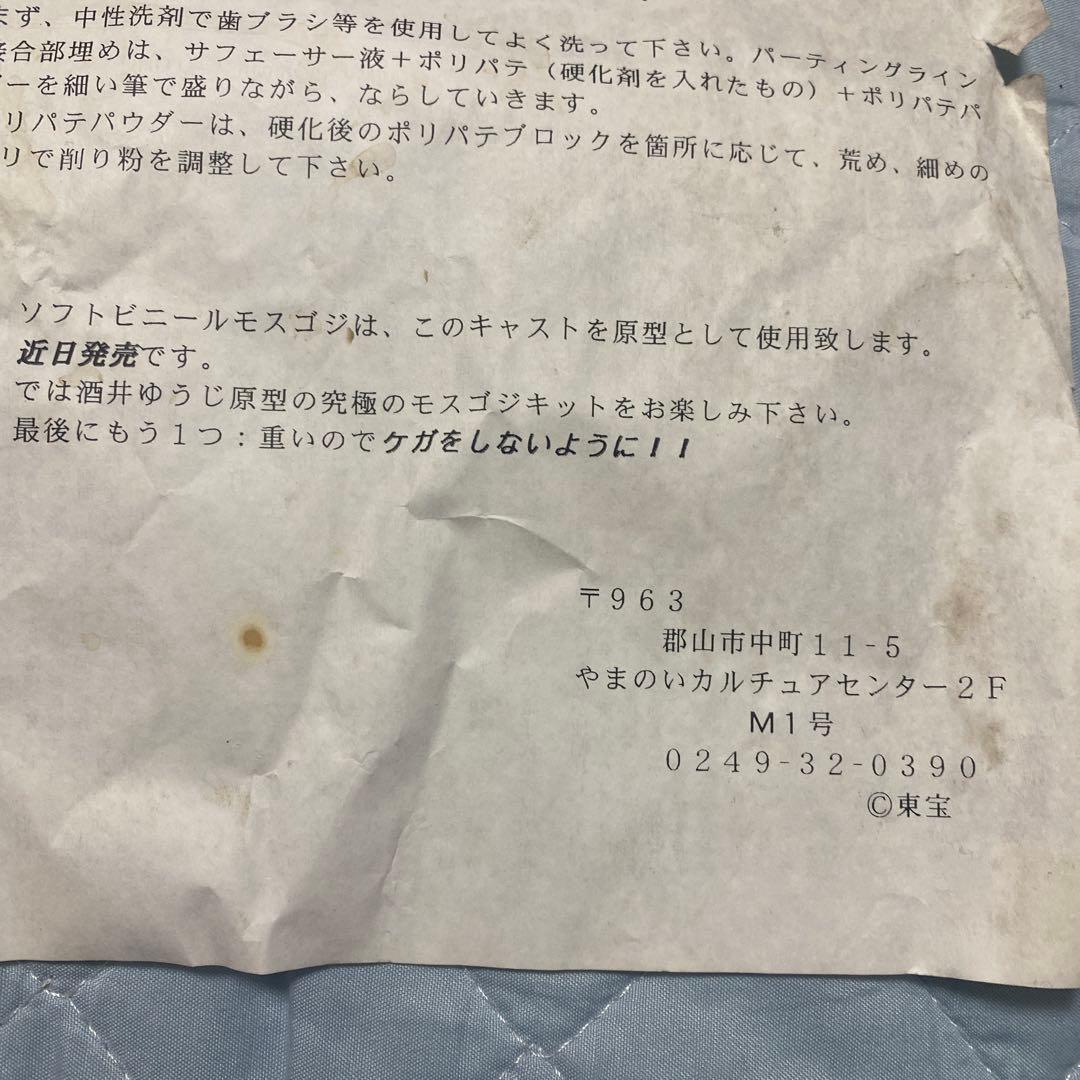 まず、中性洗剤で歯ブラシ等を使用してよく洗って下さい。パーティングライン
接合部埋めは、サフェーサー液＋ポリパテ（硬化剤を入れたもの）＋ポリパテパ
ダーを細い筆で盛りながら、ならしていきます。
リパテパウダーは、硬化後のポリパテブロックを箇所に応じて、荒め、細めの
リで削り粉を調整して下さい。
ソフトビニールモスゴジは、このキャストを原型として使用致します。
近日発売です。
では酒井ゆうじ原型の究極のモスゴジキットをお楽しみ下さい。
最後にもう１つ：重いのでケガをしないように！！
〒９６３
郡山市中町１１-５
やまのいカルチュアセンター２Ｆ
Ｍ１号
０２４９-３２-０３９０
©東宝